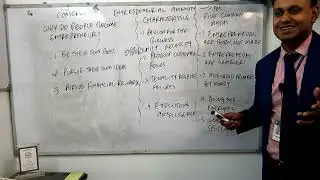 WHY DO PEOPLE BECOME
ENTREPRENEUR?
1. BE THEIR OWN BOSS
2. PURSUE THEIR IDEAS
3. PURSUE FINANCIAL REWARDS
ENTREPRENEURIAL
CHARACTERISTICS
1. PASSION FOR THE
BUSINESS
2. PRODUCT CUSTOMER
FOCUS
3. TENACITY DESPITE
FAILURES
4. EXECUTION
INTELLIGENCE
FIVE COMMON
MYTHS
1. ENTREPRENEURS
ARE BORN, NOT MADE
2. ENTREPRENEURS
ARE GAMBLERS
3. MOTIVATED PRIMARILY
BY MONEY
4. YOUNG AND
ENERGETIC
5.